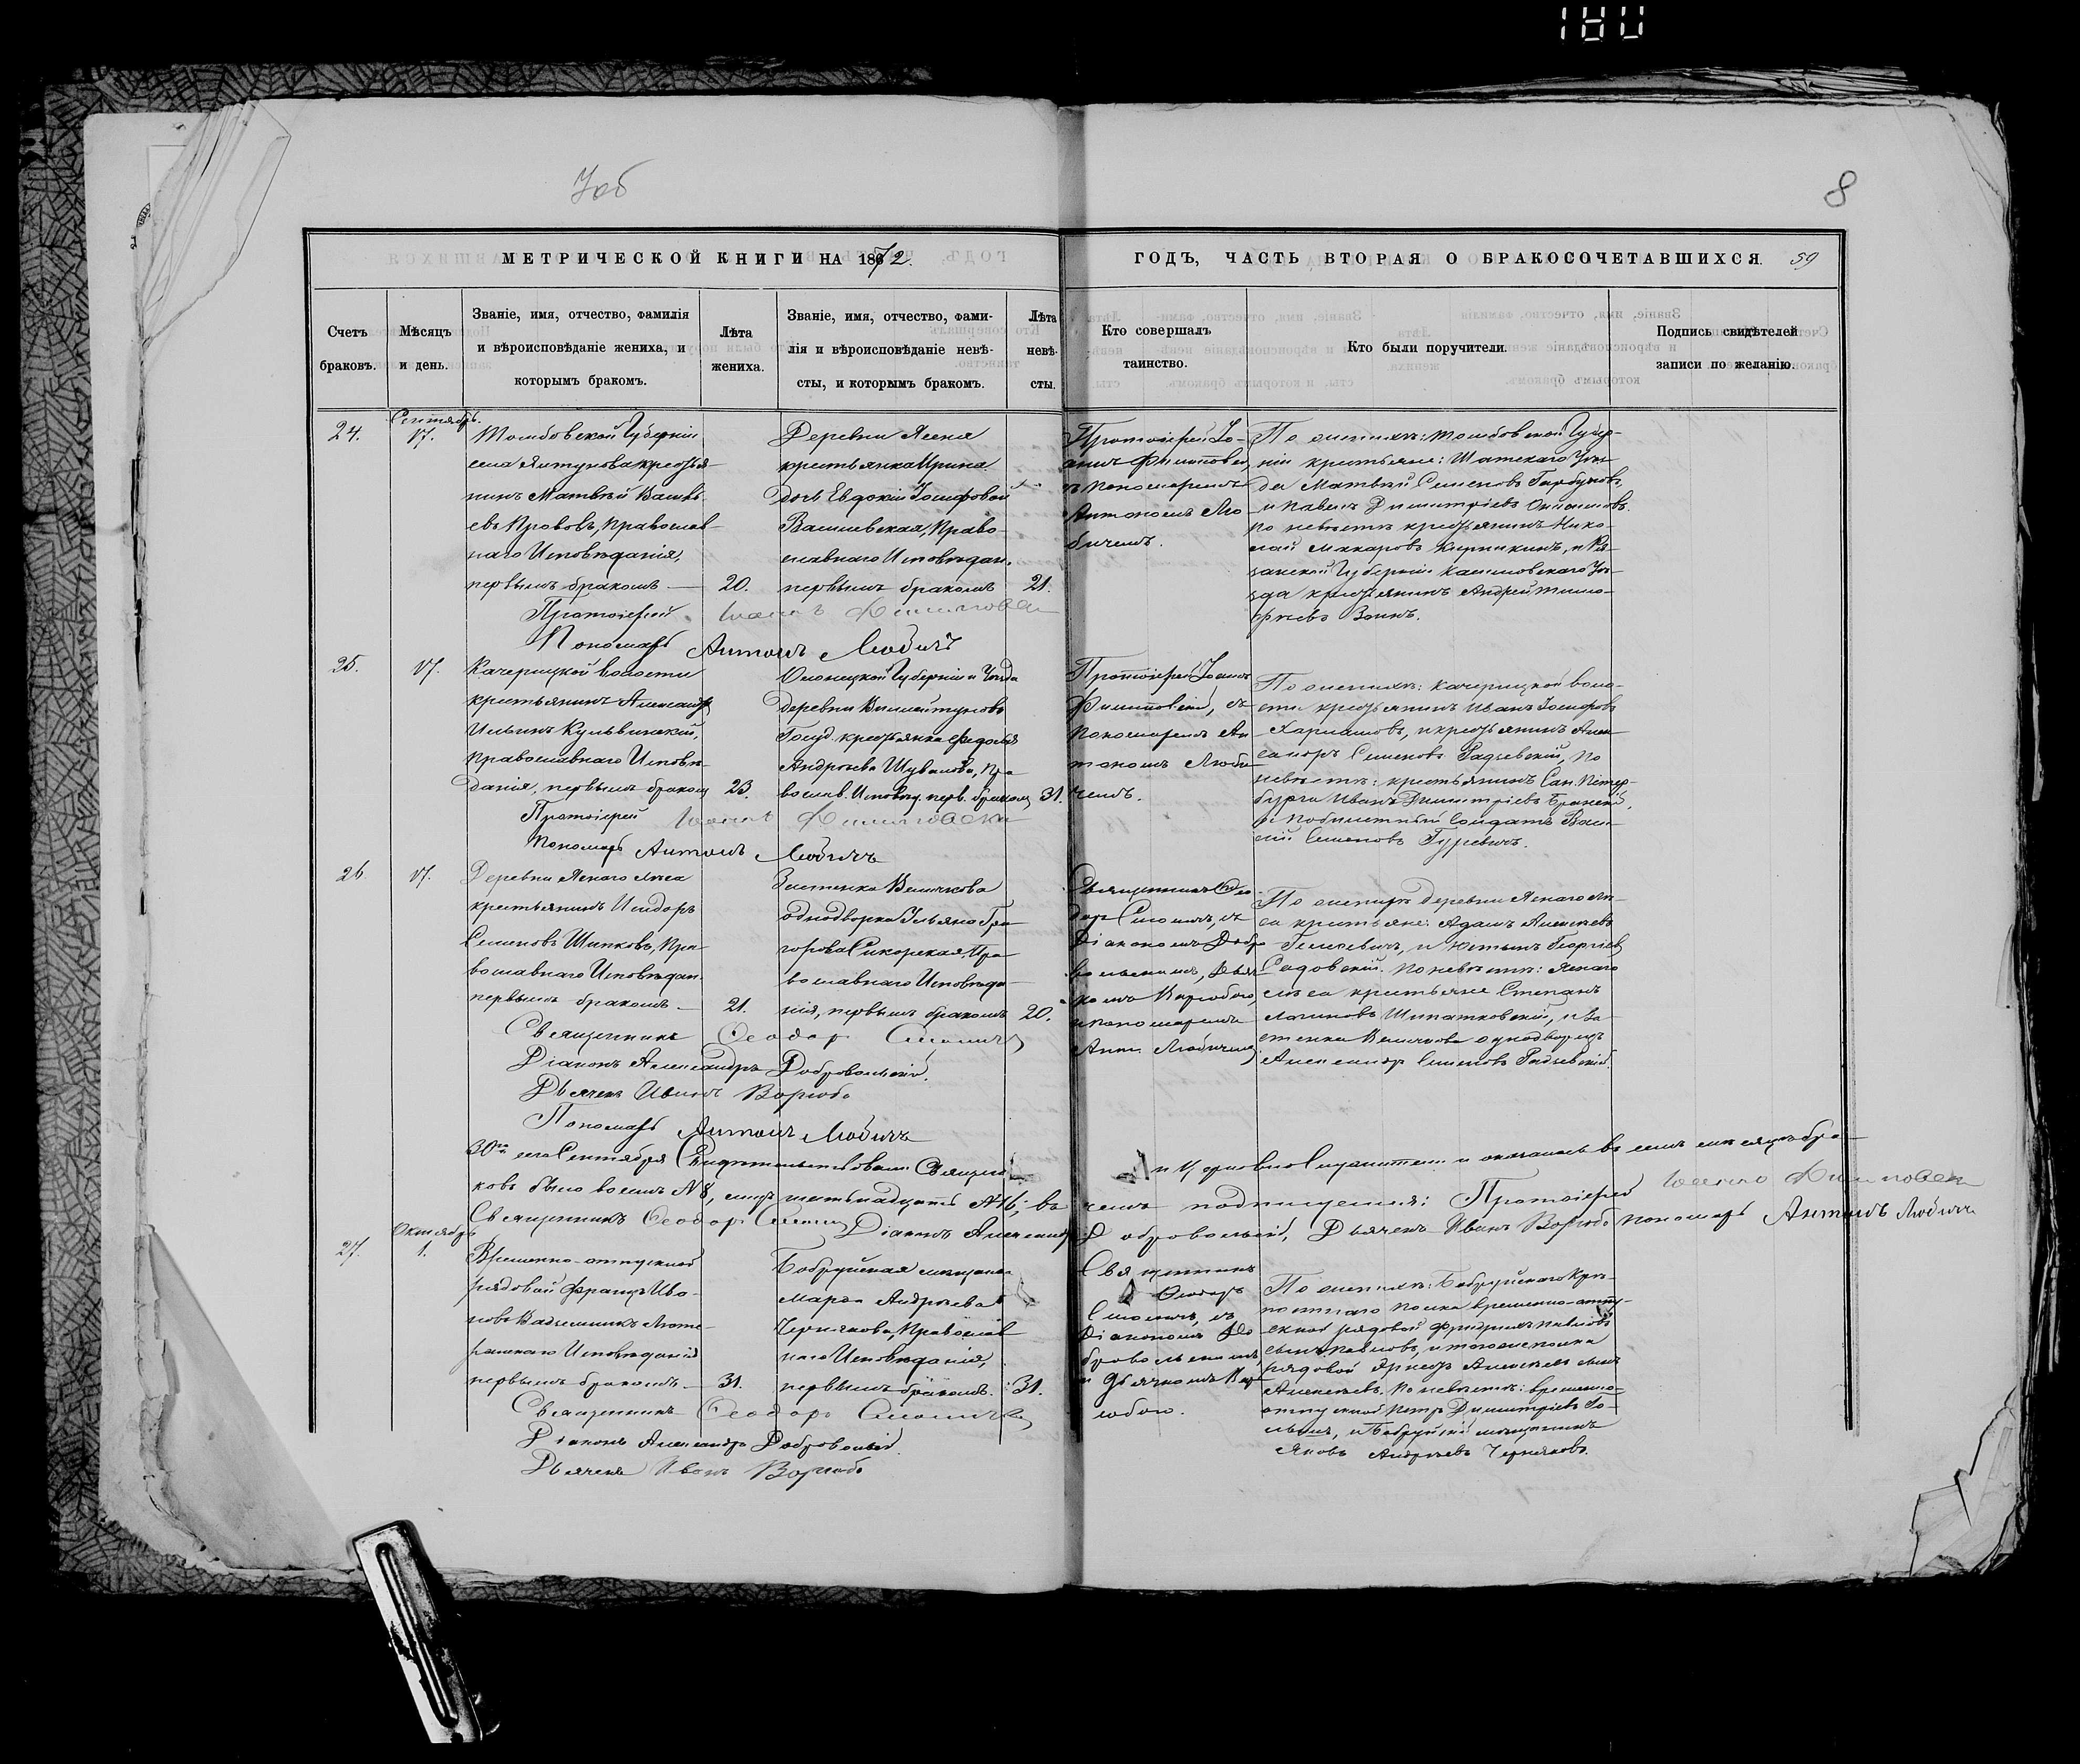 180
8
МЕТРИЧЕСКОЙ КНИГИ НА 1872.
ГОДЪ, ЧАСТЬ ВТОРАЯ О БРАКОСОЧЕТАВШИХСЯ. 59
Счетъ
браковъ.
Мѣсяцъ
и день.
Званіе, имя, отчество, фамилія
и вѣроисповѣданіе жениха, и
которымъ бракомъ.
Лѣта
жениха.
Званіе, имя, отчество, фами-
лія и вѣроисповѣданіе невѣ-
сты, и которымъ бракомъ.
Лѣта
невѣ-
сты.
Кто совершалъ
таинство.
Кто были поручители.
Подпись свидѣтелей
записи по желанію.
24.
Сентябрь.
17.
Тамбовской Губерніи
села крестья-
нинъ Матвѣй Василь
евъ Прововъ, православ-
наго Исповѣданія,
первымъ бракомъ —
20.
Деревни Ясеня
крестьянка Ирина
дочь Евдокіи Іосифовой
Василевская, Право-
славнаго Исповѣдан.
первымъ бракомъ
21.
Протоіерей Іо-
аннъ Филиповскій,
съ Пономаремъ
Антономъ Лю-
бичемъ.
По женихѣ: Тамбовской Губер-
ніи крестьяне: Шатскаго Уѣз-
да Матвѣй Семеновъ Горбуновъ,
и Павелъ Димитріевъ
по невѣстѣ крестьянинъ Нико-
лай Макаровъ Кирпикинъ, и Ря-
занской Губерніи Касимовскаго Уѣ-
зда крестьянинъ Андрей Тимо-
феевъ
Протоіерей Іоаннъ Филиповскій
Пономарь Антонъ Любичъ
25.
17.
Качерицкой волости
крестьянинъ Александръ
Ильинъ Кульвинскій,
православнаго Исповѣ-
данія, первымъ бракомъ
23.
Олонецкой Губерніи и Уѣзда
деревни
Госуд. крестьянка Федосья
Андреева Шувалова, Пра
вослав. Исповѣд. перв. бракомъ
31.
Протоіерей Іоаннъ
Филиповскій, съ
Пономаремъ Ан
тономъ Люби
чемъ.
По женихѣ: Качерицкой воло-
сти крестьянинъ Иванъ Іосифовъ
Харлашовъ, и крестьянинъ Алек-
сандръ Семеновъ Радзевскій, по
невѣстѣ: крестьянинъ Сан. Петер-
бурга Иванъ Димитріевъ
и побилетный Солдатъ Васи-
лій Семеновъ Гуревичъ.
Протоіерей Іоаннъ Филиповскій
Пономарь Антонъ Любичъ
26.
17.
Деревни Яснаго лѣса
крестьянинъ Исидоръ
Семеновъ Шипковъ, Пра-
вославнаго Исповѣдан.
первымъ бракомъ —
21.
Застенка Величкова
однодворка Ульяна Гри-
горова Сикорская, Пра-
вославнаго Исповѣда-
нія, первымъ бракомъ
20.
Священникъ Ѳео-
доръ Смоличъ, съ
Діакономъ Добро
вольскимъ, Дьяч
комъ Воробью,
и пономаремъ
Антон. Любичемъ
По женихѣ деревни Яснаго лѣ-
са крестьяне: Адамъ Алексѣевъ
и Юстинъ Георгіевъ
Садовскій. По невѣстѣ: Яснаго
лѣса крестьяне Степанъ
Шпатковскій, и За-
стенка Величкова однодворецъ
Александръ Семеновъ Радзевскій.
Священникъ Ѳеодоръ Смоличъ
Діаконъ Александръ Добровольскій.
Дьячекъ Иванъ
Пономарь Антонъ Любичъ
30го сего Сентября Свидѣтельствовали Священно
и Церковно Служители и оказалось въ семъ мѣсяцѣ бра-
ковъ было восемъ №8, лицъ шестьнадцать №16; въ
чемъ подписуемся: Протоіерей Іоаннъ Филиповскій
Священникъ Ѳеодоръ Смоличъ Діаконъ Александръ
Добровольскій, Дьячекъ Иванъ Пономарь Антонъ Любичъ
27.
Октябрь
1.
Временно-отпускной
рядовой Францъ Ива-
новъ Люте-
ранскаго Исповѣданія
первымъ бракомъ —
31.
Бобруйская мѣщанка
Марѳа Андреева
Чернякова, Православ
наго Исповѣданія,
первымъ бракомъ.
31.
Священникъ
Ѳеодоръ
Смоличъ, съ
Діакономъ До
бровольскимъ
и Дьячкомъ
По женихѣ: Бобруйскаго Крѣ-
постнаго полка временно-отпу-
скной рядовой Фридрихъ Павловъ
сынъ Павловъ, и того же полка
рядовой Алексѣевъ сынъ
Алексѣевъ. По невѣстѣ: временно-
отпускной Петръ Димитріевъ
и Бобруйскій мѣщанинъ
Яковъ Андреевъ Черняковъ.
Священникъ Ѳеодоръ Смоличъ
Діаконъ Александръ Добровольскій.
Дьячекъ Иванъ